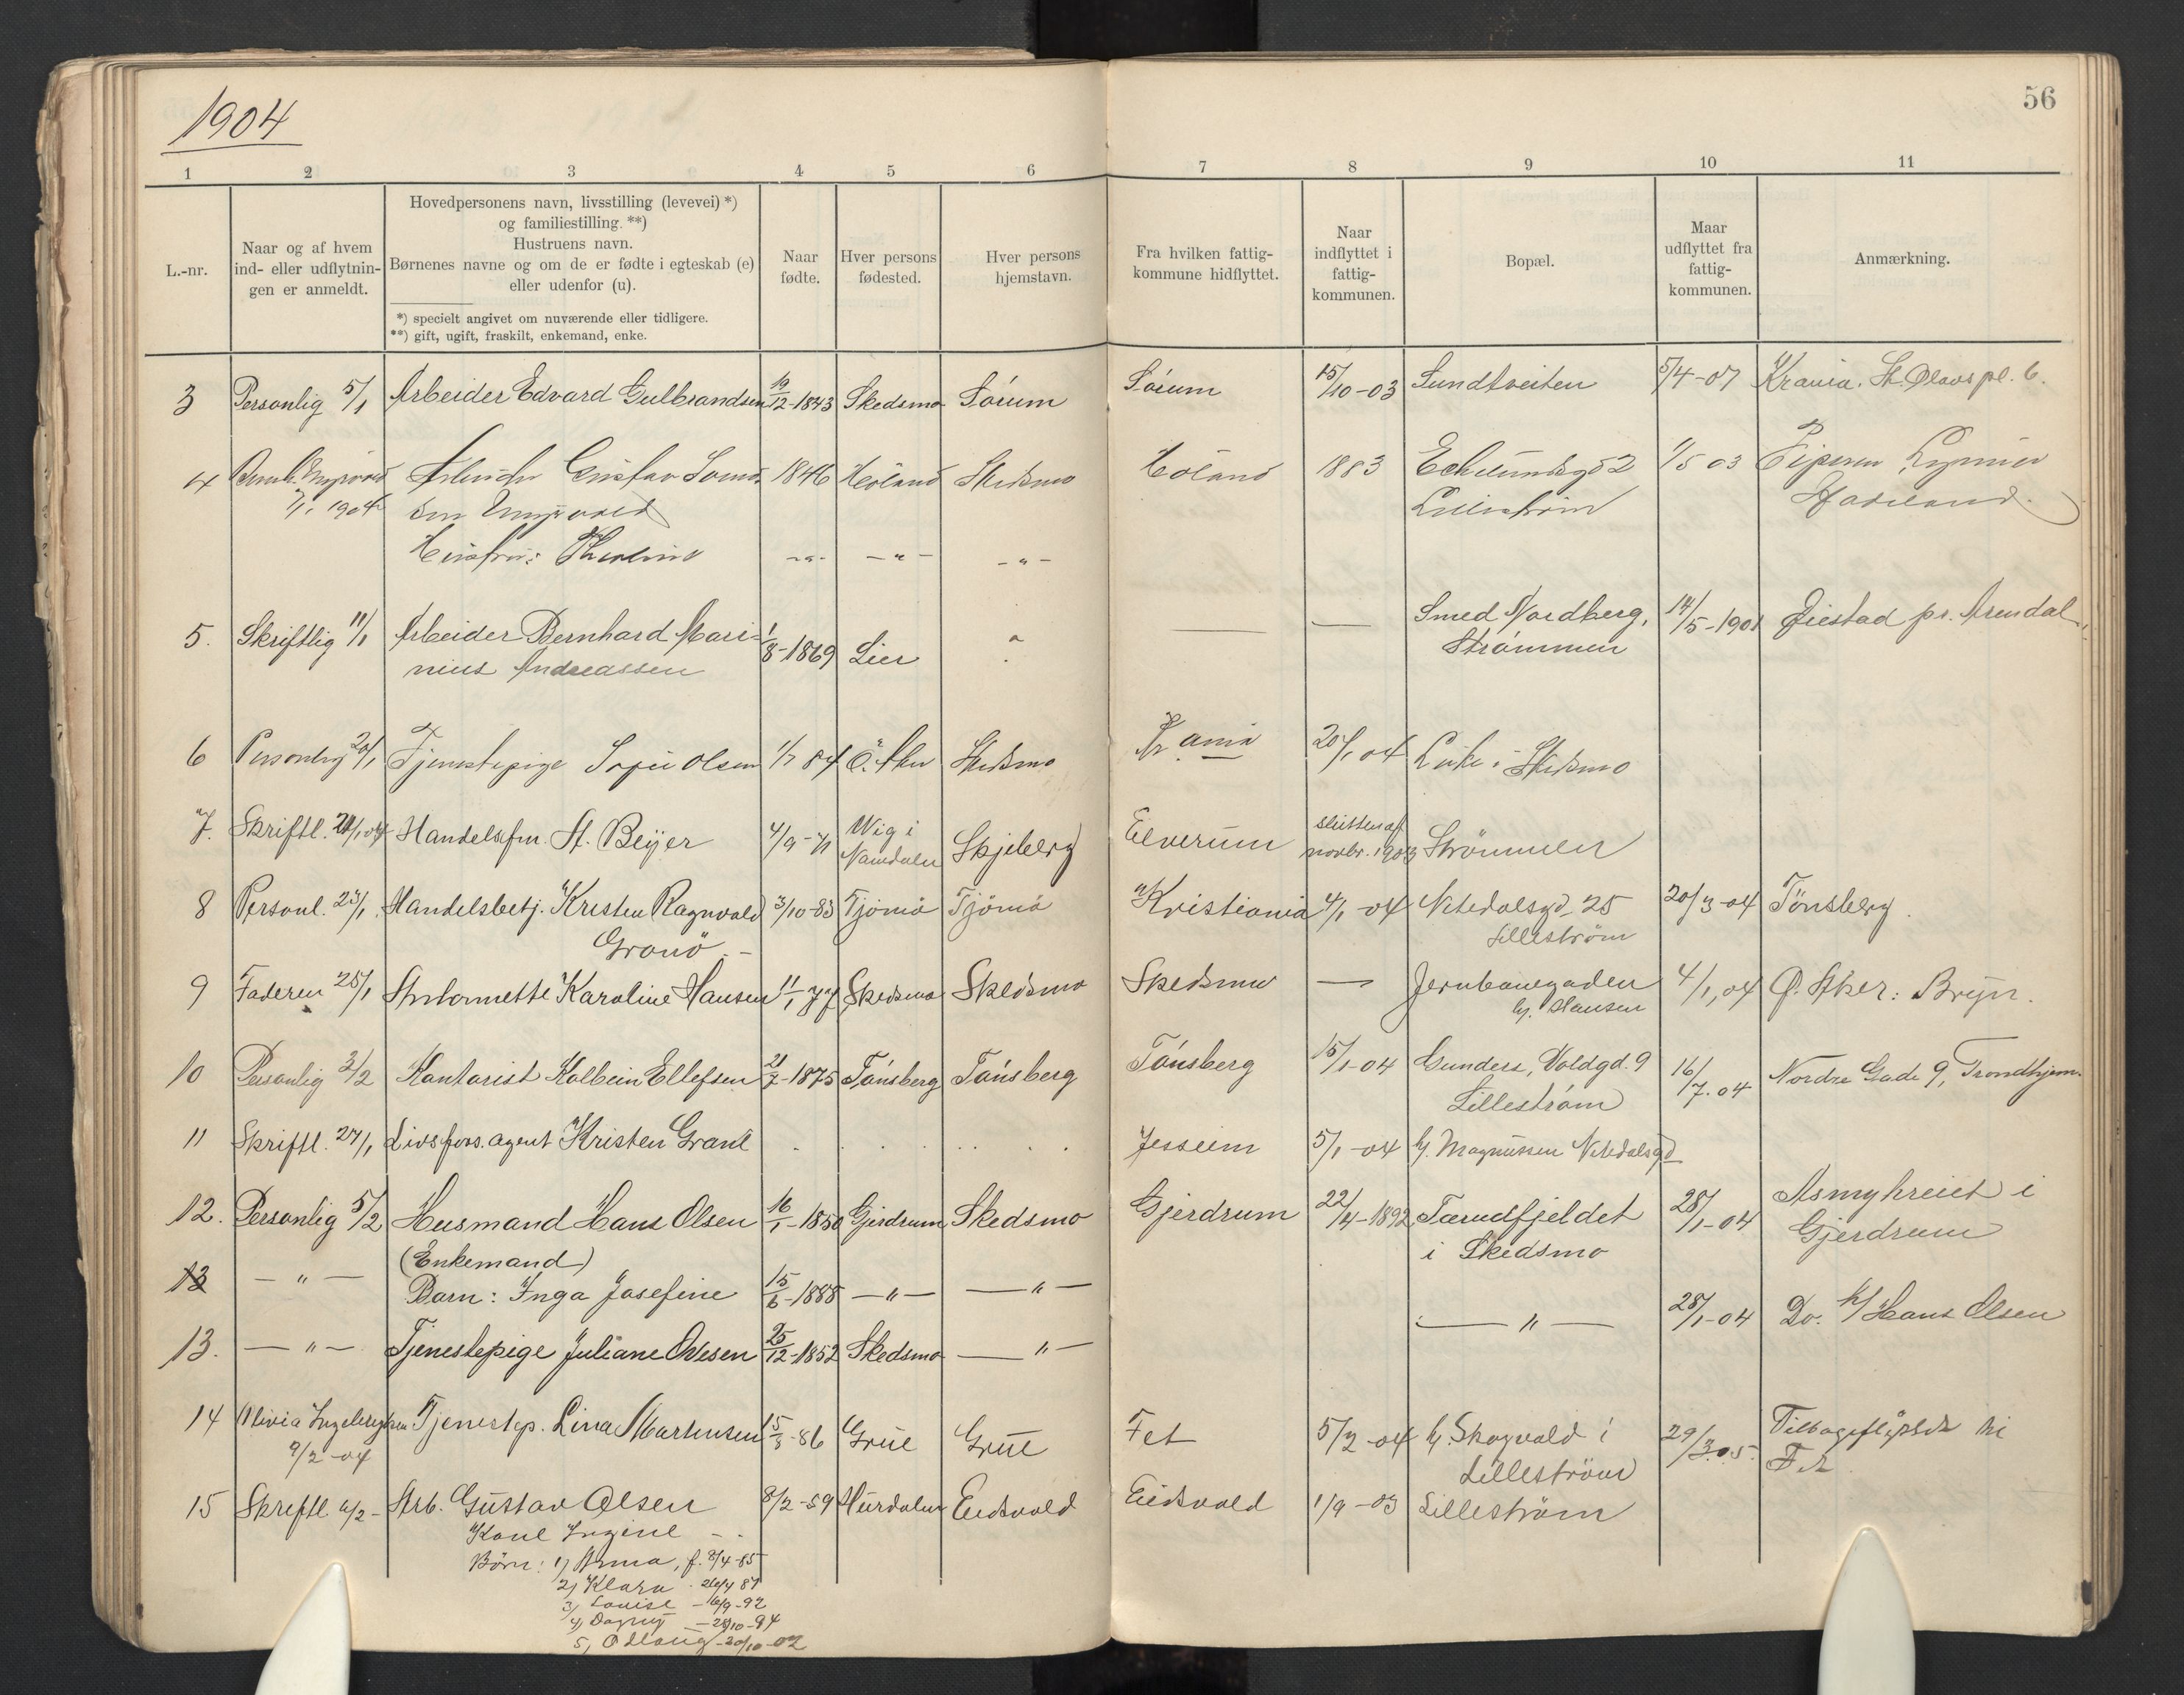 1904
56
1 2 3 4 5 6 7 8 9 10 11
L.-nr.
Naar og af hvem
ind- eller udflytnin-
gen er anmeldt.
Hovedpersonens navn, livsstilling (levevei) *)
og familiestilling. **)
Hustruens navn.
Børnenes navne og om de er fødte i egteskab (e)
eller udenfor (u).
*) specielt angivet om nuværende eller tidligere.
**) gift, ugift, fraskilt, enkemand, enke.
Naar
fødte.
Hver persons
fødested.
Hver persons
hjemstavn.
Fra hvilken fattig-
kommune hidflyttet.
Naar
indflyttet i
fattig-
kommunen.
Bopæl.
Maar
udflyttet fra
fattig-
kommunen.
Anmærkning.
3 Personlig 5/1 Arbeider Edvard Gulbrandsen 19/12-1843 Skedsmo Sörum Sörum 15/10-03 Sundtveiten 5/4-07 Krania. St. Olavs pl. 6.
4 Arbeider Gustav 1846 Höland Skedsmo Höland 1883 1/5 03
7/1. 1904 Lilleström Hadeland
Hustru: -"- -"- -"-
5. Skriftlig 11/1 Arbeider Bernhard Mari- 1/8-1869 Lier " — — Smed Nordberg, 14/5-1901 Øiestad pr. Arendal.
nius Andreassen Strömmen
6 Personlig 20/1 Tjenestepige Olsen 1/7 84 Ö. Aker Skedsmo Kr.ania 20/1 04 i Skedsmo
7. Skriftl. 21/1 04 Handelsfm. A. Beijer 4/9-71 Wig i Skjeberg Elverum slutten af Strömmen
Namdalen novbr. 1903
8 Personl. 23/1 Handelsbetj. Kristen Ragnvald 3/10-83 Tjömö Tjömö Kristiania 4/1-04 Nitedalsgd. 25 20/3-04 Tönsberg.
Granö - Lilleström
9 Faderen 25/1 Karoline Hansen 11/1 77 Skedsmo Skedsmo Skedsmo — Jernbanegaden 4/1,04 Ø. Aker: Bryn.
hj. Hansen
10 Personlig 3/2 Kontorist Kolbein Ellefsen 21/7-1875 Tönsberg Tönsberg Tönsberg 15/1-04 Gunders, Voldgd. 9 16/7.04 Nordre Gade 9, Trondhjem.
Lilleström
11 Skriftl. 27/1 Livsfors. agent Kristen Grane Jesseim 5/1-04 hj. Magnussen Nitedalsgd
12. Personlig 5/2 Husmand Hans Olsen 16/1-1850 Gjerdrum Skedsmo Gjerdrum 22/4-1892 Tærudfjeldet 28/1-04 Asmyhreiet i
(Enkemand) i Skedsmo Gjerdrum
13 -"- Barn: Inga Josefine 15/6-1888 -"- -"- -"- 28/1-04 Do. h/ Hans Olsen
13. -"- Tjenestepige Juliane Olsen 25/12-1852 Skedsmo -"-
14 Olivia Tjenestep. Lina Martinsen 15/3-86 Grue Grue Fet 5/2-04 hj. Skogvold i 29/3.05. Tilbageflyttet til
9/2-04 Lilleström Fet
15 Skriftl 6/2- Arb. Gustav Olsen 8/2-59 Hurdalen Eidsvold Eidsvold 1/9-03 Lilleström
Kone Ingine - -
Börn: 1) Anna, f. 8/4-85
2) Klara - 26/4 87
3) Louise - 16/9-92
4) Dagny - 28/10-94
5) Odlaug - 20/10-02